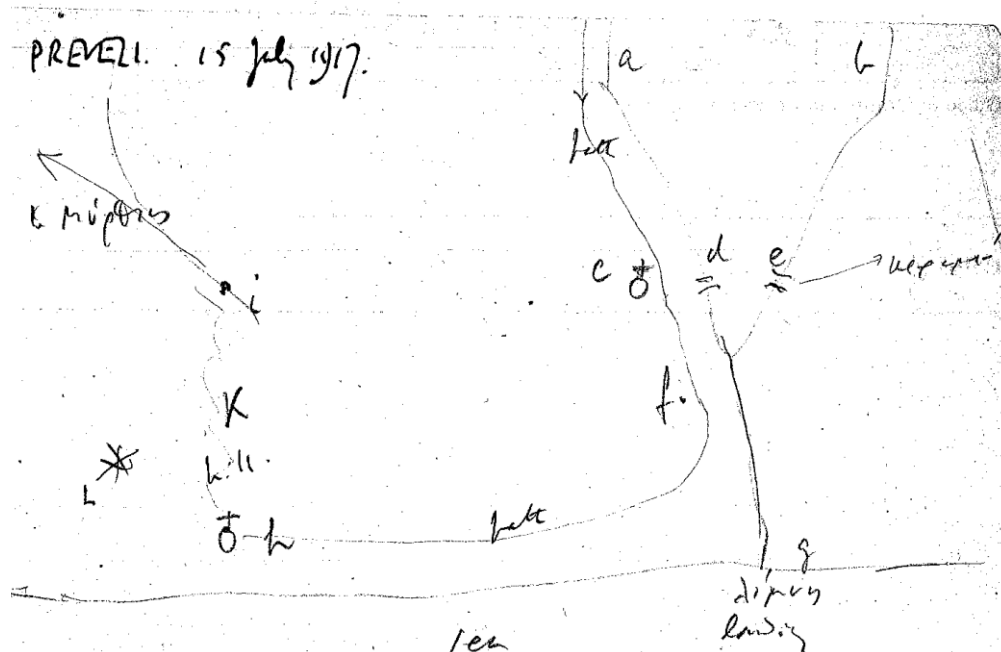 PREVELI. 15 July 1917.
a
b
path
κ μύρθιος
c
d
e
i
f.
K
hill.
L
h
path
g
λίμνη
landing
sea